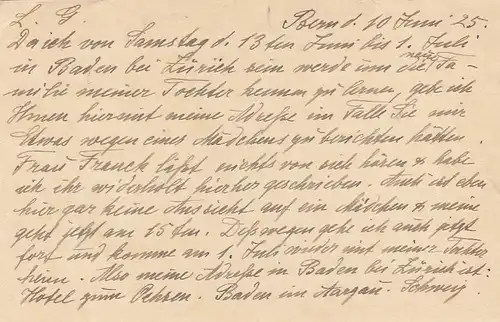 L. G. Bern d. 10 Juni 25.
Da ich von Samstag d. 13ten Juni bis 1. Juli
in Baden bei Zürich sein werde um die neue Fa-
milie meiner Tochter kennen zu lernen, gebe ich
Ihnen hiermit meine Adresse im Falle Sie mir
Etwas wegen eines Mädchens zu berichten hätten.
Frau Franck läßt nichts von sich hören & habe
ich ihr wiederholt hierher geschrieben. Auch ist eben
hier gar keine Aussicht auf ein Mädchen & meine
geht jetzt am 15ten. Deßwegen gehe ich auch jetzt
fort und komme am 1. Juli wieder mit meiner Tochter
heim. Also meine Adresse in Baden bei Zürich ist:
Hotel zum Ochsen. Baden im Aargau. Schweiz.